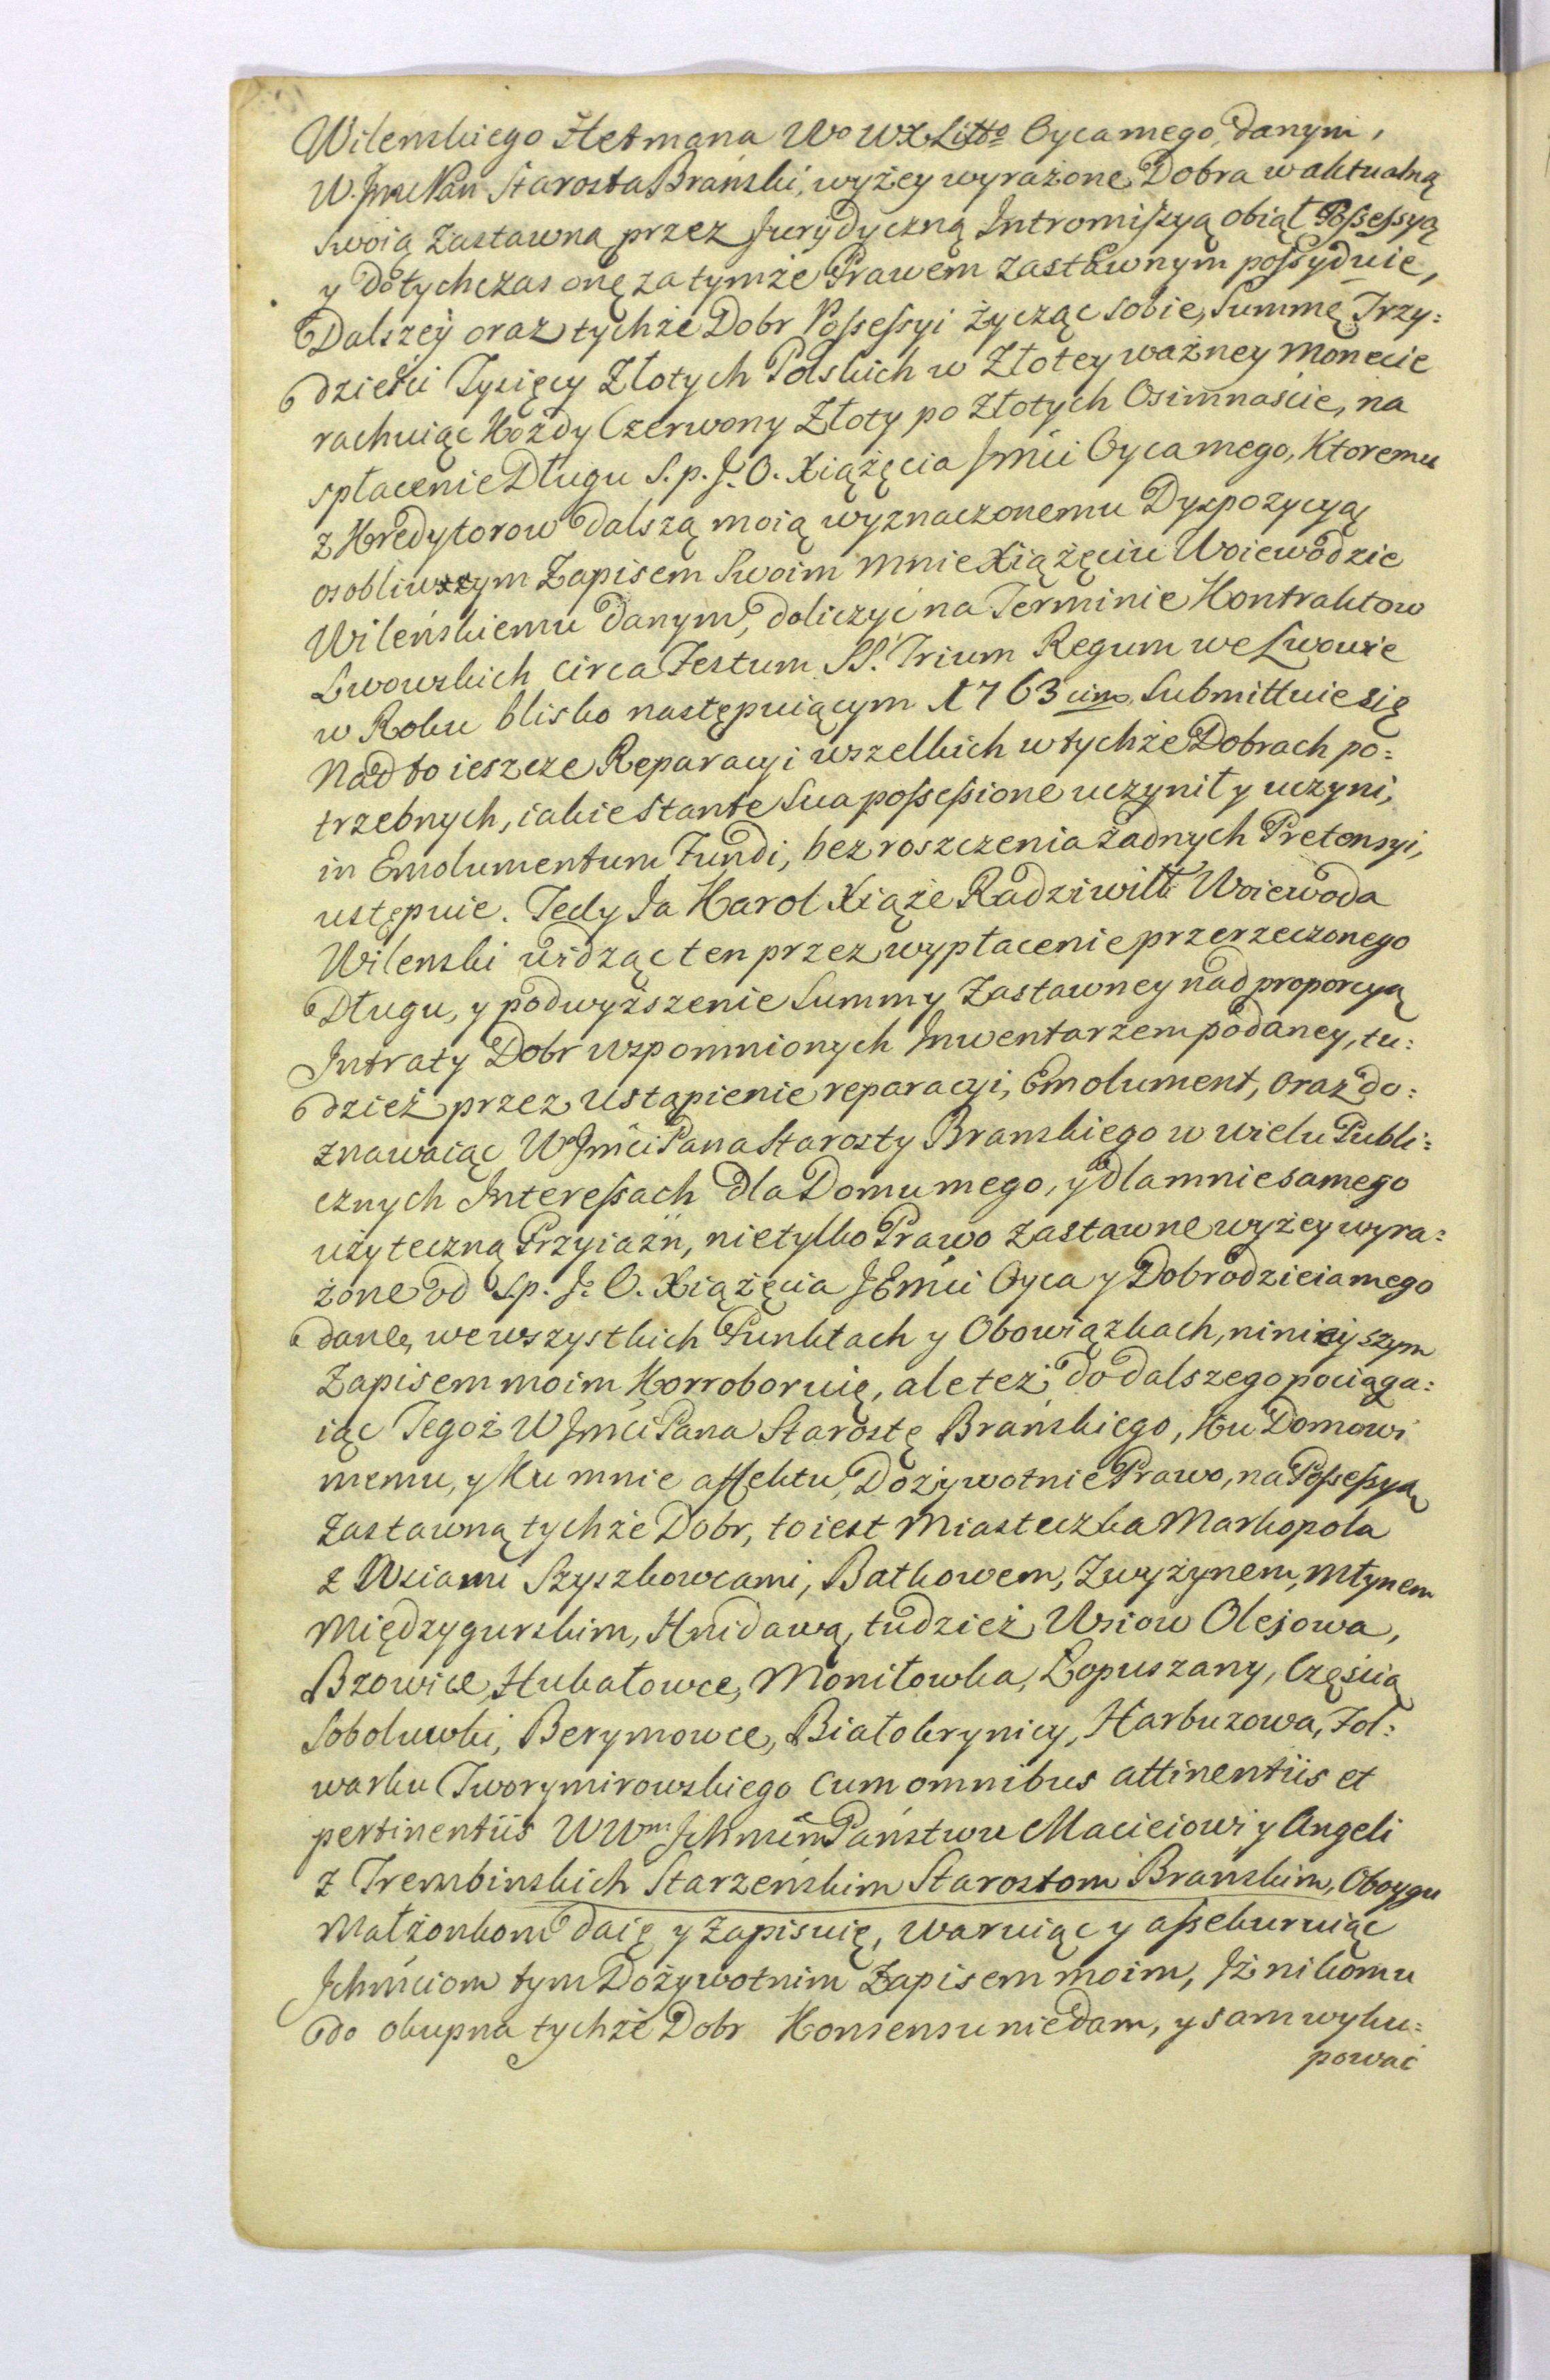 Wilenskiego Hetmana Wo WX Litto Oyca mego, danym,
W. Jmć Pan Starosta Brański, wyżey wyrażone Dobra w aktualną
swoią zastawną przez Jurydyczną Intromiſsyą obiął Poſseſsyą
y dotychczas onę za tymże Prawem zastawnym poſsyduie,
Dalszey oraz tychże Dobr Poſseſsyi życząc sobie, Summę Trzy=
dzieści Tysięcy Złotych Polskich w Złotey ważney Monecie
rachuiąc Każdy Czerwony Złoty po złotych Osimnaście, na
spłacenie Długu S. p. J. O. Xiążęcia Jmći Oyca mego, Ktoremu
z Kredytorow dalszą moią wyznaczonemu Dyspozycyą
osobliwszym Zapisem Swoim mnie Xiążęciu Woiewodzie
Wileńskiemu danym, doliczyć na Terminie Kontraktow
Lwowskich circa Festum SS. Trium Regum we Lwowie
w Roku blisko następuiącym 1763cim. Submittuie się
Nadto ieszcze Reparacyi wszelkich w tychże Dobrach po=
trzebnych, iakie Stante Sua poſseſsione uczynił y uczyni,
in Emolumentum Fundi, bez roszczenia żadnych Pretensyi,
ustępuie. Tedy Ja Karol Xiąże Radziwiłł Woiewoda
Wilenski widząc ten przez wypłacenie przerzeczonego
Długu, y podwyższenie Summy Zastawney nad proporcyą
Intraty Dobr wspomnionych Inwentarzem podaney, tu=
dzież przez ustąpienie reparacyi, Emolument, oraz do=
znawaiąc W Jmći Pana Starosty Branskiego w wielu Publi=
cznych Intereſsach dla Domu mego, y dla mnie samego
użyteczną Przyiaźń, nietylko Prawo zastawne wyżey wyra=
żone od S.p. J. O. Xiążęcia JEmći Oyca y Dobrodzieia mego
dane, we wszystkich Punktach y Obowiązkach, ninieyszym
Zapisem moim Korroboruię, ale też do dalszego pociąga=
iąc Tegoż W Jmći Pana Starostę Brańskiego, Ku Domowi
memu, y Ku mnie affektu, Dożywotnie Prawo, na Poſseſsyą
Zastawną tychże Dobr, to iest Miasteczka Markopola
z Wsiami Szyszkowcami, Batkowem, Zwyżynem, Młynem
Międzygurskim, Hnidawą, tudzież Wsiow Olejowa,
Bzowice, Hukałowce, Moniłowka, Łopuszany, Częścią
Soboluwki, Berymowce, Białokrynicy, Harbuzowa, Fol=
warku Tworymirowskiego cum omnibus attinentiis et
pertinentiis WWm Ichmćm Państwu Macieiowi y Angeli
z Trembinskich Starzeńskim Starostom Branskim, Oboygu
Małżonkom daię y zapisuię, waruiąc y aſsekuruiąc
Ichmćiom tym Dożywotnim Zapisem moim, Iż nikomu
do okupna tychże Dobr Konsensu nie dam, y sam wyku=
pować